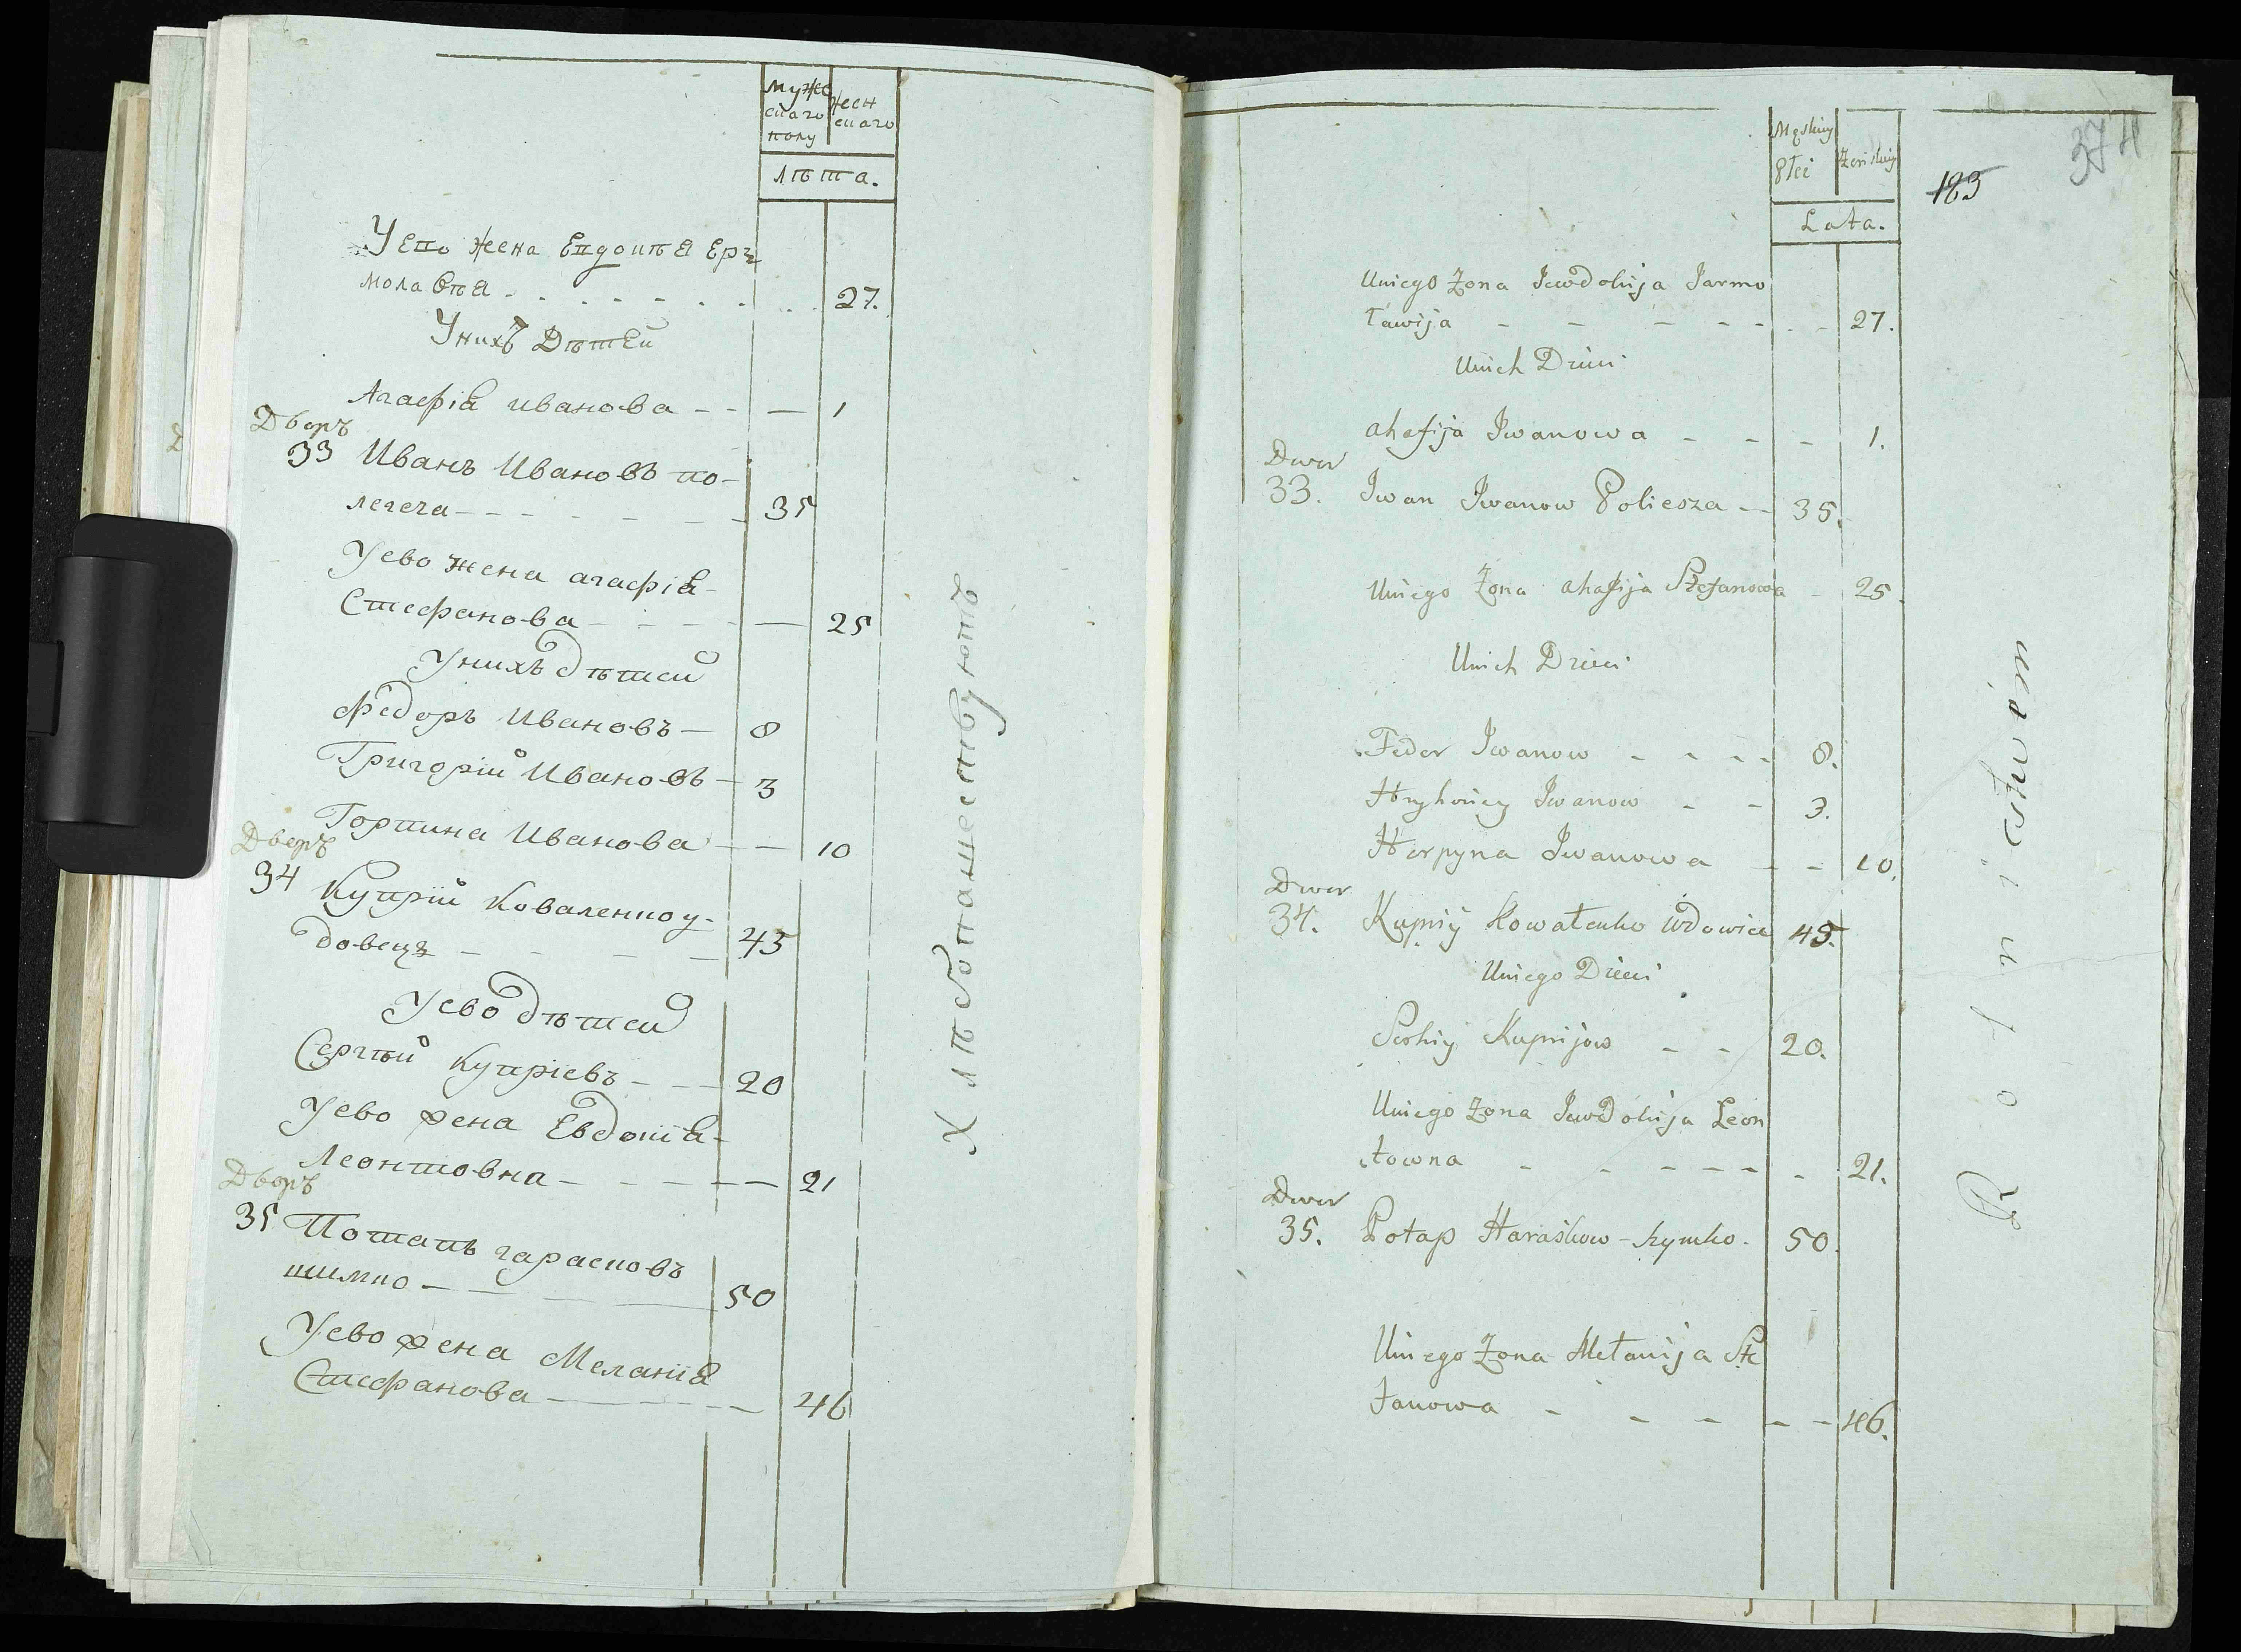 муже
скаго
полу
женскаго
лѣта.
Уево жена Евдокѣя Ер
молаевѣа 27.
Унихъ Дѣтей
Агафія иванова 1
Дворъ
33 Иванъ Ивановъ по-
легеча 35
Уево жена агафія
Стефанова 25
Унихъ дѣтей
Федоръ Ивановъ 8
Григорій Ивановъ 3
Горпина Иванова 10
Дворъ
34 Куприй Коваленко у-
довецъ 45
Уево дѣтей
Сергѣй Купріевъ 20
Уево жена Евдокія
Леонтовна 21
Дворъ
35 Потапъ гарасковъ
кимко 50
Уево жена Меланія
Стефанова 46
Хлѣбопашествуютъ
Męskiey
Płci
Żeńskiey
Lata.
183
374
Uniego Żona Jewdokija Jarmo
ławija 27.
Unich Dzieci
ahafija Iwanowa 1.
Dwor
33. Iwan Iwanow Poliesza 35.
Uniego Żona ahafija Stefanowa 25
Unich Dzieci
Fedor Iwanow 8.
Hryhoriey Iwanow 3.
Horpyna Iwanowa 10.
Dwor
34. Kupriy Kowalenko Wdowiec 45.
Uniego Dzieci
Serhiy Kuprijow 20.
Uniego Żona Jewdokija Leon
towna 21.
Dwor
35. Potap Haraśkow-kymko. 50.
Uniego Żona Mełanija Ste
fanowa 46.
Rolnictwem